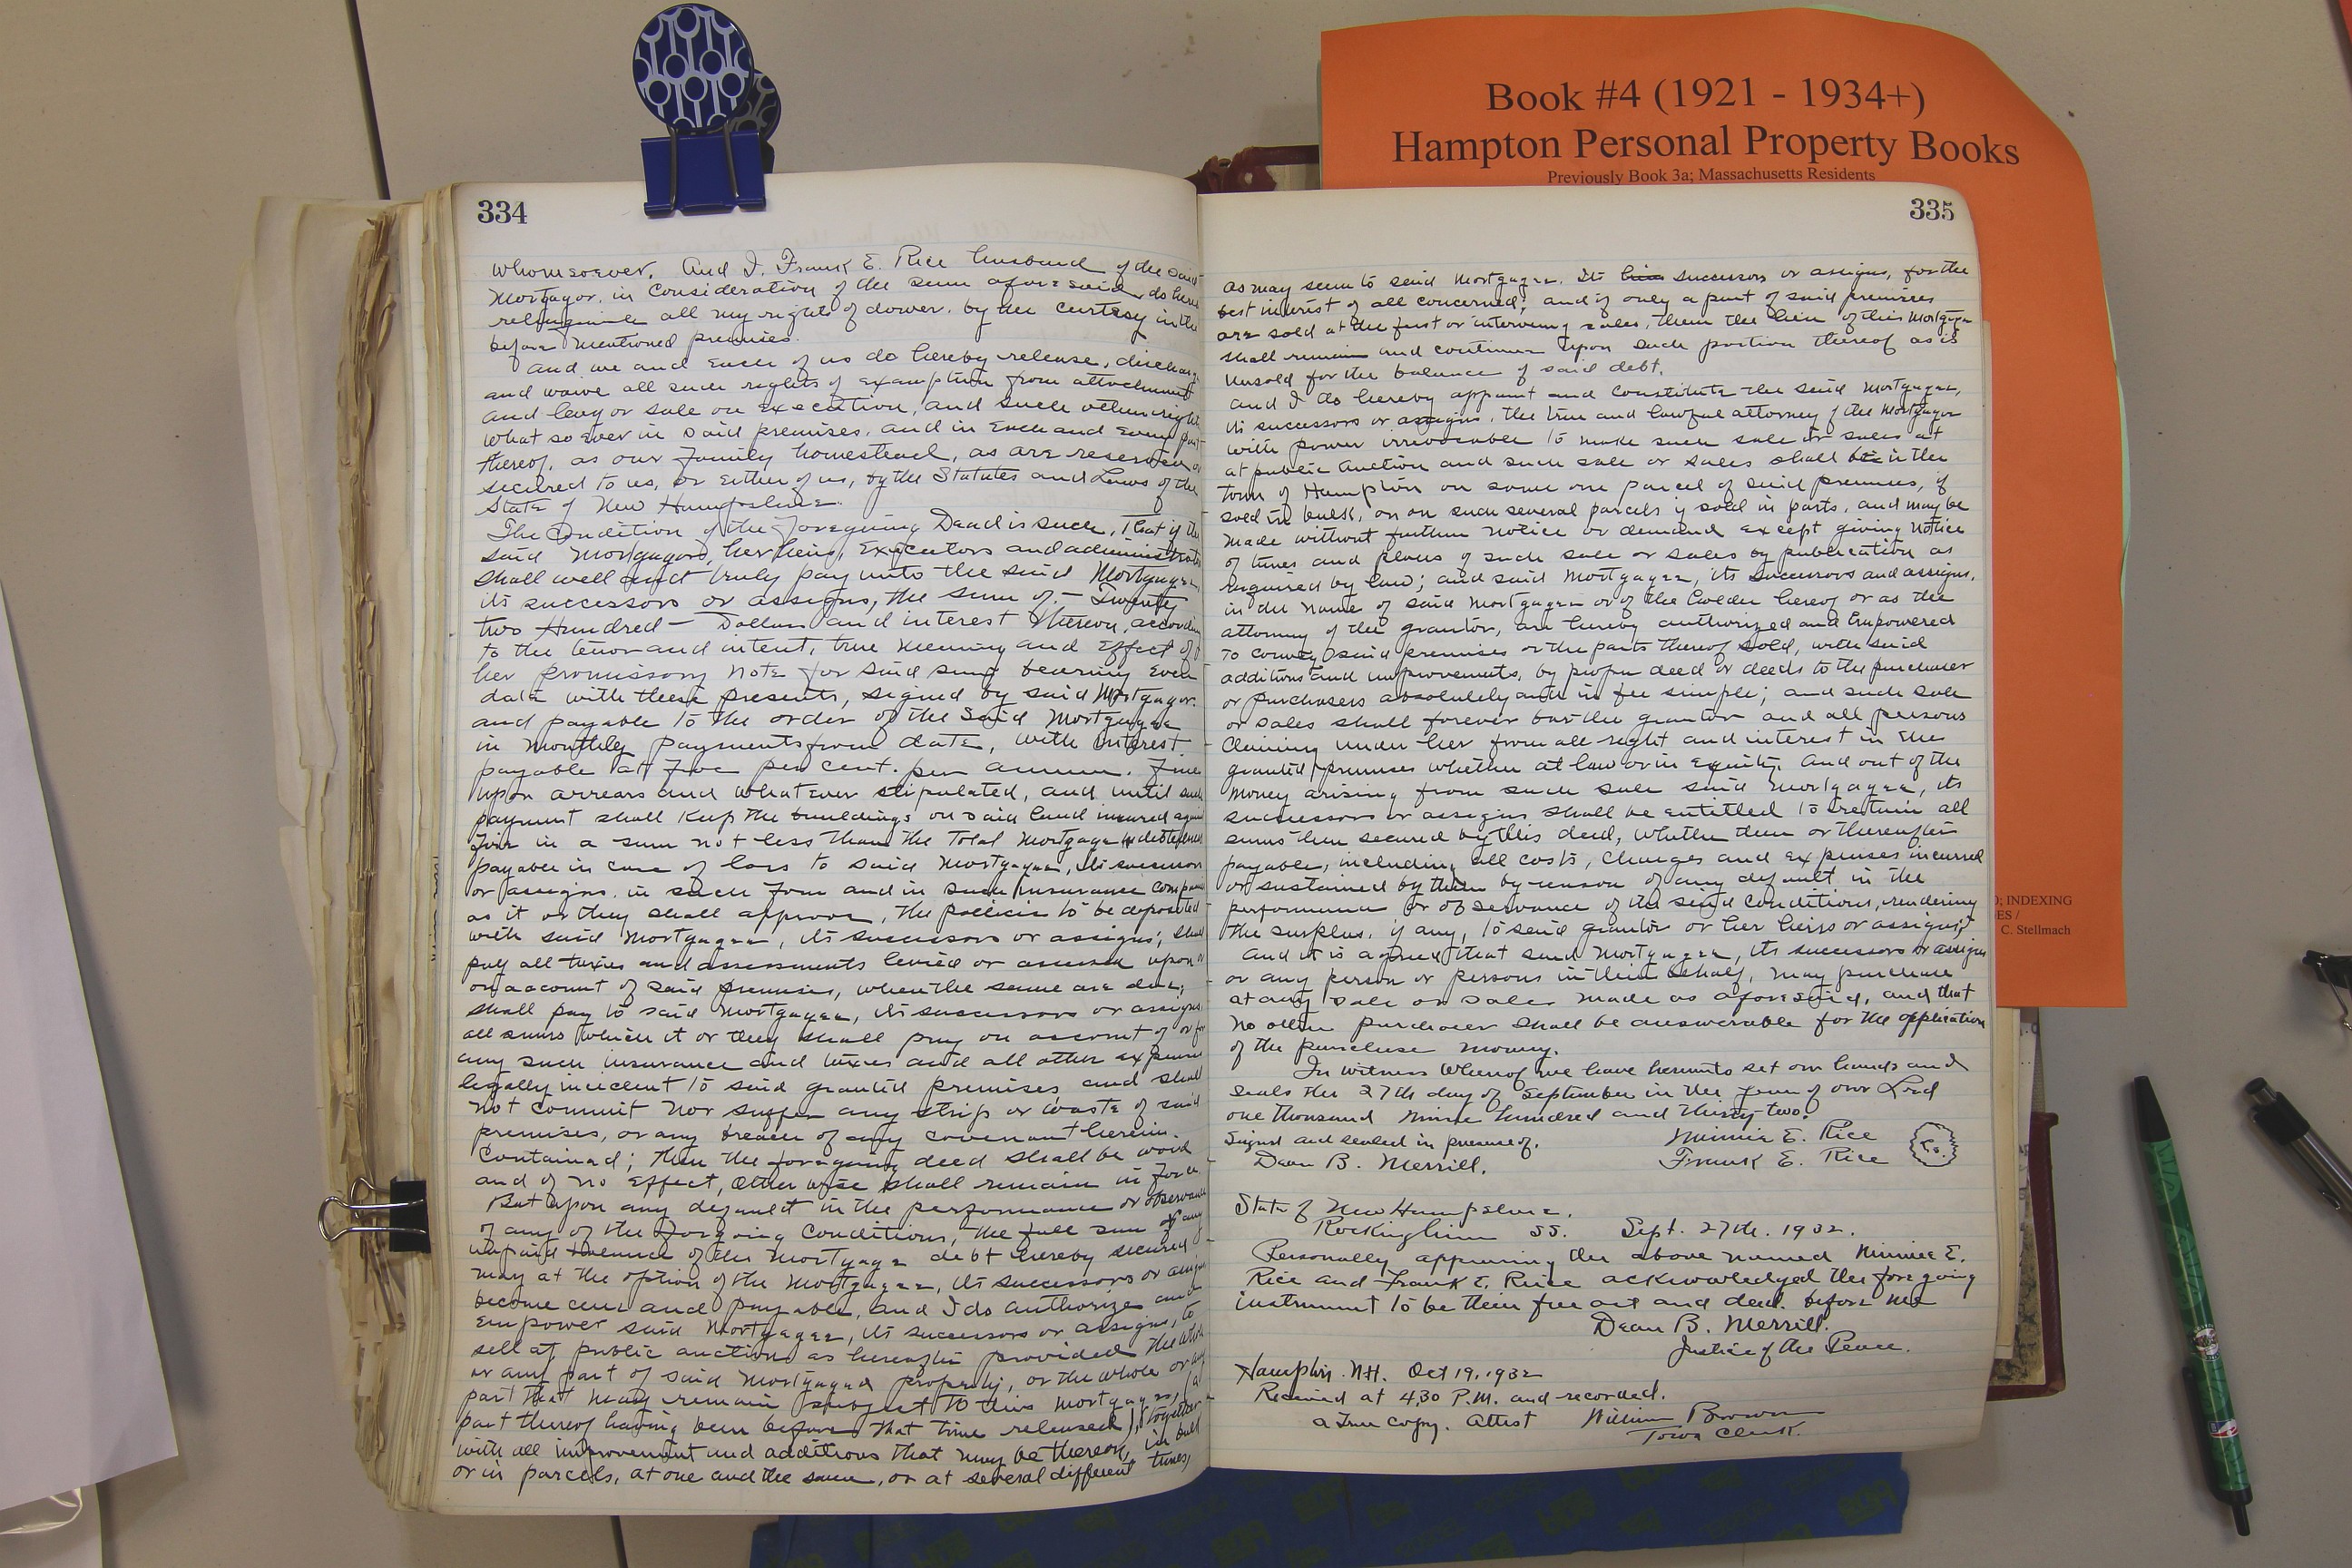 Book #4 (1921 - 1934+)
Hampton Personal Property Books
Previously Book 3a; Massachusetts Residents
334
whomsoever. And I, Frank E. Rice husband of the said
Mortgagor, in consideration of the sum aforesaid, do here
relinquish all my rights of dower, by the curtesy in the
before mentioned premises.
and we and each of us do hereby release, discharge
and waive all such rights of exemption from attachment
and levy or sale on execution, and such other rights
what so ever in said premises, and in each and every part
thereof, as our family homestead, as are reserved or
secured to us, or either of us, by the Statutes and Laws of the
State of New Hampshire.
The Condition of the foregoing Deed is such, That if the
said Mortgagor, her heirs, Executors and administrators
shall well and truly pay unto the said Mortgagee
its successors or assigns, the sum of - Twenty
two Hundred - Dollars and interest thereon, according
to the tenor and intent, true meaning and effect of
her promissory note for said sum bearing even
date with these presents, signed by said Mortgagor
and payable to the order of the said Mortgagee
in monthly payments from date, with interest
payable at five per cent. per annum. Fines
upon arrears and whatever stipulated, and until such
payment shall keep the buildings on said land insured against
fire in a sum not less than the total Mortgage
payable in case of loss to said Mortgagee, its successors
or assigns, in such form and in such insurance companies
as it or they shall approve, the policies to be deposited
with said Mortgagee, its successors or assigns; shall
pay all taxes and assessments levied or assessed upon or
on account of said premises, when the same are due;
shall pay to said Mortgagee, its successors or assigns
all sums which it or they shall pay on account of or for
any such insurance and taxes and all other expenses
legally incident to said granted premises and shall
not commit nor suffer any strip or waste of said
premises, or any breach of any covenant herein
contained; then the foregoing deed shall be void
and of no effect, otherwise shall remain in force.
But upon any default in the performance or observance
of any of the forgoing conditions, the full sum or any
unpaid balance of the mortgage debt hereby secured
may at the option of the Mortgagee, its successors or assigns
become due and payable, and I do authorize and
empower said Mortgagee, its successors or assigns, to
sell at public auction as hereafter provided the whole
or any part of said Mortgaged property, or the whole or any
part that may remain subject to this mortgage, (a
part thereof having been before that time released), together
with all improvement and additions that may be thereon, in bulk
or in parcels, at one and the same, or at several different times,
335
as may seem to said Mortgagee. Its his successors or assigns, for the
best interest of all concerned; and if only a part of said premises
are sold at the first or intervening sales, then the lien of this Mortgage
shall remain and continue upon such portion thereof as is
unsold for the balance of said debt.
and I do hereby appoint and constitute the said Mortgagee,
its successors or assigns, the true and lawful attorney of the Mortgagor
with power irrevocable to make such sale or sales at
at public auction and such sale or sales shall be in the
town of Hampton on some one parcel of said premises, if
sold in bulk, or on such several parcels if sold in parts, and may be
made without further notice or demand except giving notice
of times and places of such sale or sales by publication as
required by law; and said Mortgagee, its successors and assigns,
in the name of said Mortgagee or of the holder hereof or as the
attorney of the grantor, are hereby authorized and empowered
to convey said premises or the parts thereof sold, with said
additions and improvements, by proper deed or deeds to the purchaser
or purchasers absolutely and in fee simple; and such sale
or sales shall forever bar the grantor and all persons
claiming under her from all right and interest in the
granted premises whether at law or in equity. And out of the
money arising from such sale said Mortgagee, its
successors or assigns shall be entitled to retain all
sums then secured by this deed, whether then or thereafter
payable, including all costs, charges and expenses incurred
or sustained by them by reason of any default in the
performance or observance of the said conditions, rendering
the surplus, if any, to said grantor or her heirs or assigns;
and it is agreed that said Mortgagee, its successors or assigns
or any person or persons in their behalf, may purchase
at any sale or sales made as aforesaid, and that
no other purchaser shall be answerable for the application
of the purchase money.
In witness whereof we have hereunto set our hands and
seals the 27th day of September in the year of our Lord
one thousand nine hundred and thirty-two.
Signed and sealed in presence of.
Minnie E. Rice
Dean B. Merrill.
Frank E. Rice
State of New Hampshire.
Rockingham SS. Sept. 27th. 1932.
Personally appearing the above named Minnie E.
Rice and Frank E. Rice acknowledged the foregoing
instrument to be their free act and deed. before me
Dean B. Merrill.
Justice of the Peace.
Hampton. N.H. Oct 19, 1932
Received at 4.30 P.M. and recorded.
a true copy. Attest William Brown
Town Clerk.
INDEXING
C. Stellmach